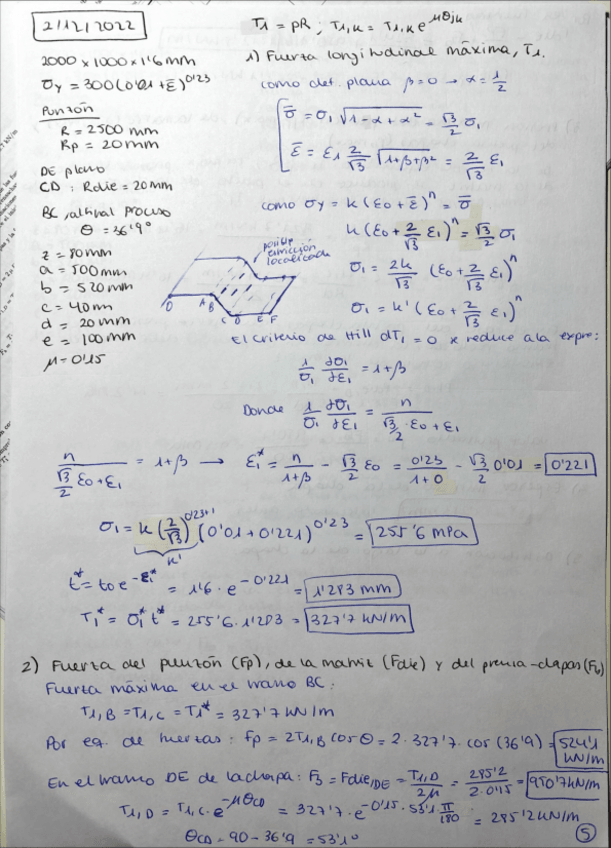 2/12/2022
T1 = pR ; T1,k = T1,k e^μθjk
2000 x 1000 x 1'6 mm
σy = 300 (0'01 + ε̄)^0'23
Punzón
R = 2500 mm
Rp = 20 mm
DE plano
CD : Rdie = 20 mm
BC, al final proceso
θ = 36'9°
z = 80 mm
a = 500 mm
b = 520 mm
c = 40 m
d = 20 mm
e = 100 mm
μ = 0'15
1) Fuerza longitudinal máxima, T1.
como def. plana β = 0 → α = 1/2
σ̄ = σ1 √(1 - α + α²) = √3/2 σ1
ε̄ = ε1 2/√3 √(1+β+β²) = 2/√3 ε1
como σy = k (ε0 + ε̄)^n = σ̄
k (ε0 + 2/√3 ε1)^n = √3/2 σ1
posible
localizada
O A B C D E F
σ1 = 2k/√3 (ε0 + 2/√3 ε1)^n
σ1 = k' (ε0 + 2/√3 ε1)^n
El criterio de Hill dT1 = 0 x reduce a la expre:
1/σ1 ∂σ1/∂ε1 = 1+β
Donde 1/σ1 ∂σ1/∂ε1 = n/(√3/2 · ε0 + ε1)
n/(√3/2 ε0 + ε1) = 1+β → ε1* = n/(1+β) - √3/2 ε0 = 0'23/(1+0) - √3/2 0'01 = 0'221
σ1 = k (2/√3)^0'23+1 (0'01 + 0'221)^0'23 = 255'6 MPa
k'
t* = t0 e^-ε1* = 1'6 · e^-0'221 = 1'283 mm
T1* = σ1* t* = 255'6 · 1'283 = 327'7 kN/m
2) Fuerza del punzón (Fp), de la matriz (Fdie) y del prensa-chapas (Fb)
Fuerza máxima en el tramo BC:
T1,B = T1,C = T1* = 327'7 kN/m
Por eq. de fuerzas : Fp = 2T1,B cos θ = 2 · 327'7 · cos (36'9) = 524'1 kN/m
En el tramo DE de la chapa : F3 = Fdie,DE = T1,D/2μ = 285'2/2·0'15 = 950'7 kN/m
T1,D = T1,C · e^-μθCD = 327'7 · e^-0'15 · 53'1 · π/180 = 285'2 kN/m
θCD = 90 - 36'9 = 53'1°
5